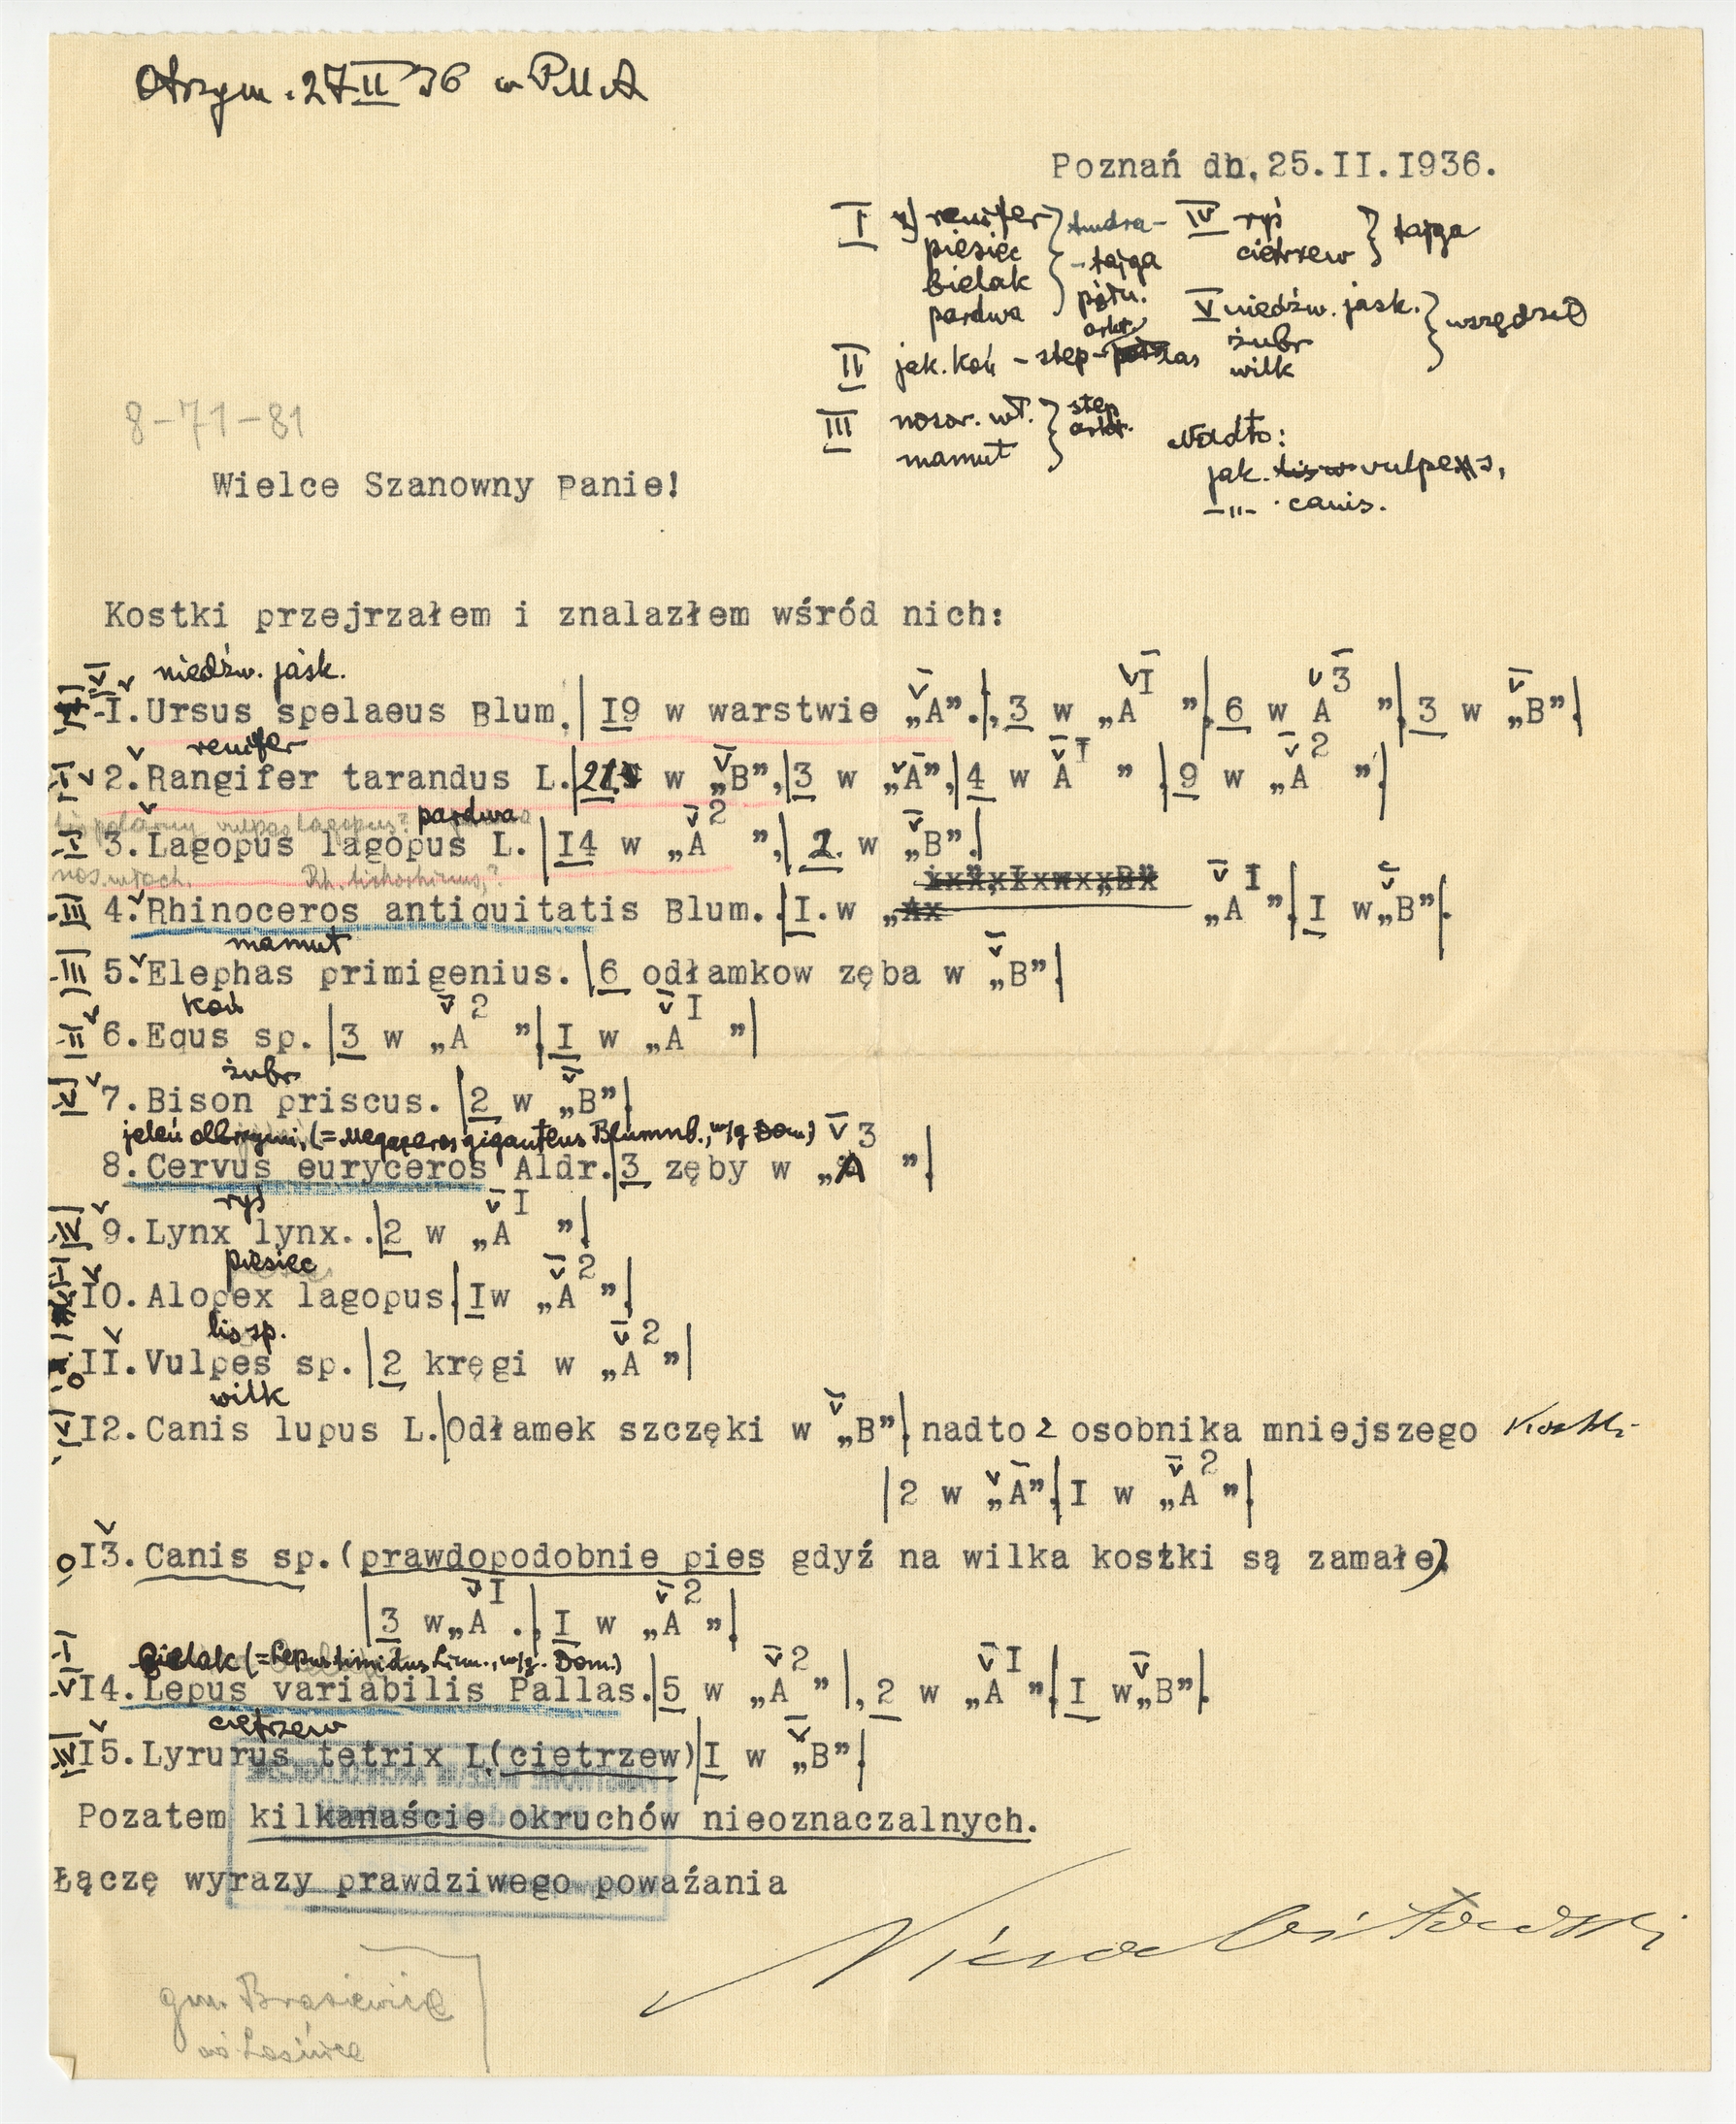 Otrzym. 27 II 36 w PMA
Poznań dn. 25.II.I936.
I renifer
piesiec
bielak
pardwa
tundra-
-tajga
półn.
IV ryś
cietrzew
tajga
V niedźw. jask.
żubr
wilk
wszędzie
II jak. koń - step- las
arkt.
III nosor. wł.
mamut
step
arkt.
Nadto:
jak. vulpes,
-"- canis.
8-71-81
Wielce Szanowny Panie!
Kostki przejrzałem i znalazłem wśród nich:
niedźw. jask.
V I. Ursus spelaeus Blum. I9 w warstwie „A”., 3 w „A I ”, 6 w A 3 ”, 3 w „B”.
renifer
I 2. Rangifer tarandus L. 21 w „B”, 3 w „A”, 4 w A I ” 9 w „A 2 ”.
lis polarny vulpes lagopus? pardwa
I 3. Lagopus lagopus L. I4 w „A 2 ”, 2. w „B”.
nos. włoch. Rh. tichorhinus,?
III 4. Rhinoceros antiquitatis Blum. I. w „A I ”. I w„B”.
mamut
III 5. Elephas primigenius. 6 odłamkow zęba w „B”.
koń
II 6. Equs sp. 3 w „A 2 ”. I w „A I ”
żubr
V 7. Bison priscus. 2 w „B”.
jeleń olbrzymi, (= Megaceros giganteus Blumnb., w/g Dom.)
8. Cervus euryceros Aldr. 3 zęby w „A 3 ”.
ryś
IV 9. Lynx lynx.. 2 w „A I ”.
piesiec
I I0. Alopex lagopus. Iw „A 2 ”.
lis sp.
II. Vulpes sp. 2 kręgi w „A 2 ”
wilk
V I2. Canis lupus L. Odłamek szczęki w „B”. nadto z osobnika mniejszego kostki
2 w „A”. I w „A 2 ”.
I3. Canis sp. (prawdopodobnie pies gdyź na wilka kostki są zamałe)
3 w„A I . I w „A 2 ”.
bielak (= Lepus timidus Linn., w/g. Dom.)
I I4. Lepus variabilis Pallas. 5 w „A 2 ”, 2 w „A I ”. I w„B”.
cietrzew
IV I5. Lyrurus tetrix L.(cietrzew) I w „B”.
Pozatem kilkanaście okruchów nieoznaczalnych.
Łączę wyrazy prawdziwego powaźania
Niezabitowski
gm. Brasiewicę